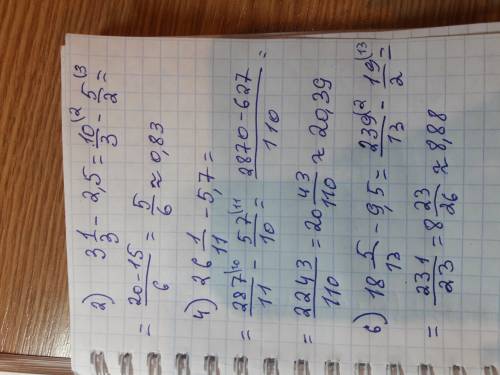 2) 3 1/3 - 2,5 = 10/3 (2 - 5/2 (3 =
= 20-15/6 = 5/6 ≈ 0,83
4) 26 1/11 - 5,7 =
= 287/11 (10 - 57/10 (11 = 2870-627/110 =
= 2243/110 = 20 43/110 ≈ 20,39
6) 18 5/13 - 9,5 = 239/13 (2 - 19/2 (13 =
= 231/23 = 8 23/26 ≈ 8,88